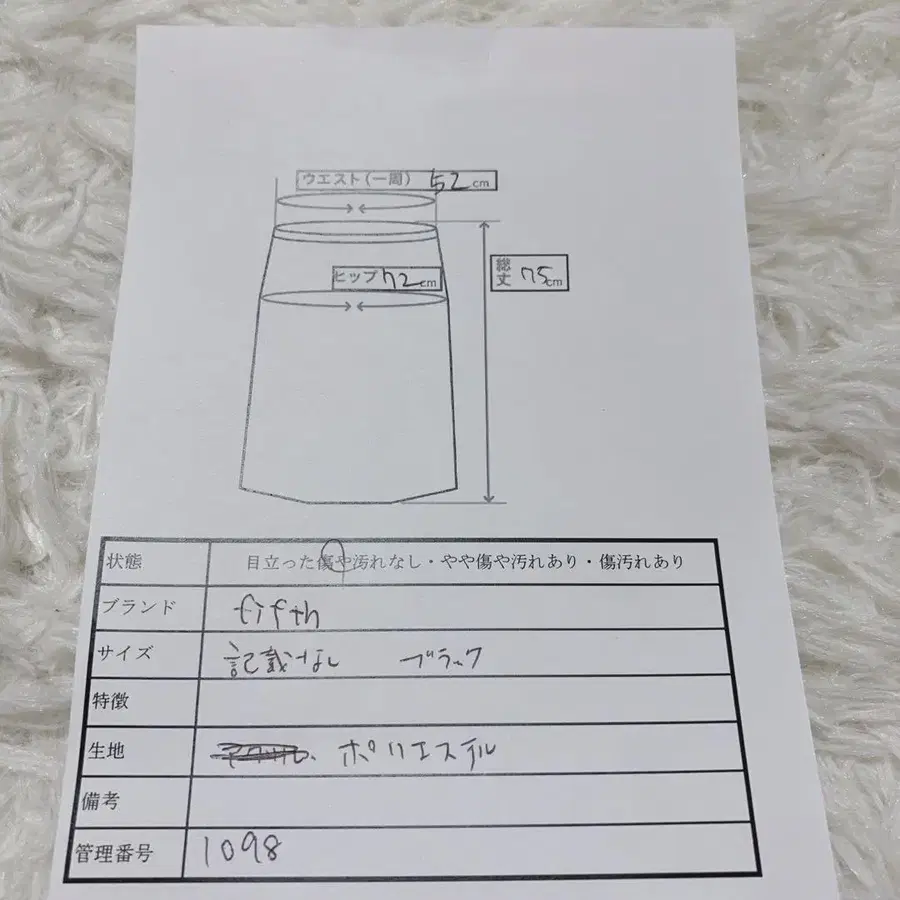 ウエスト(一周) 52cm
ヒップ 72cm
総丈 75cm
状態 目立った傷や汚れなし・やや傷や汚れあり・傷汚れあり
ブランド fifth
サイズ 記載なし ブラック
特徴
生地 ポリエステル
備考
管理番号 1098